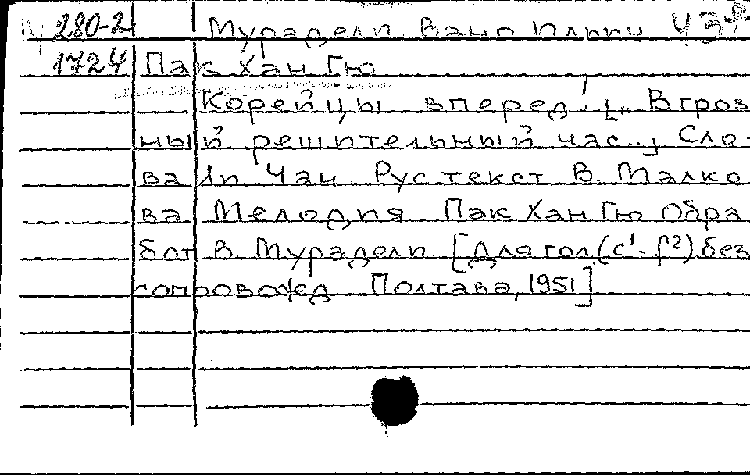 280-2 Мурадели Вано Ильич
1724 Пак Хан Гю
Корейцы вперед! [„В гроз-
ный решительный час..] Сло-
ва Ли Чан Рус текст В. Малко
ва Мелодия Пак Хан Гю Обра
бот В Мурадели [Для гол(с¹-f²) без
сопровожд Полтава, 1951]